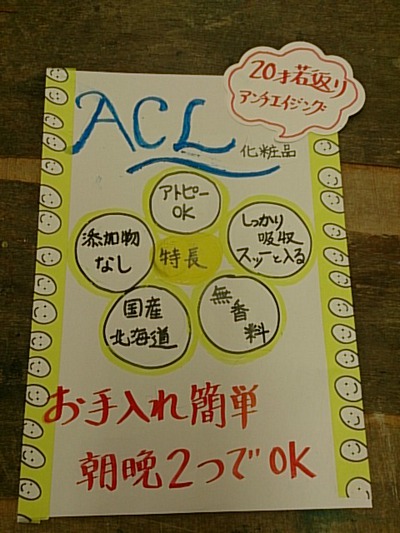 20才若返り
アンチエイジング
ACL
化粧品
アトピー
OK
添加物
なし
特長
しっかり
吸収
スッーと入る
国産
北海道
無香
料
お手入れ簡単
朝晩2つでOK